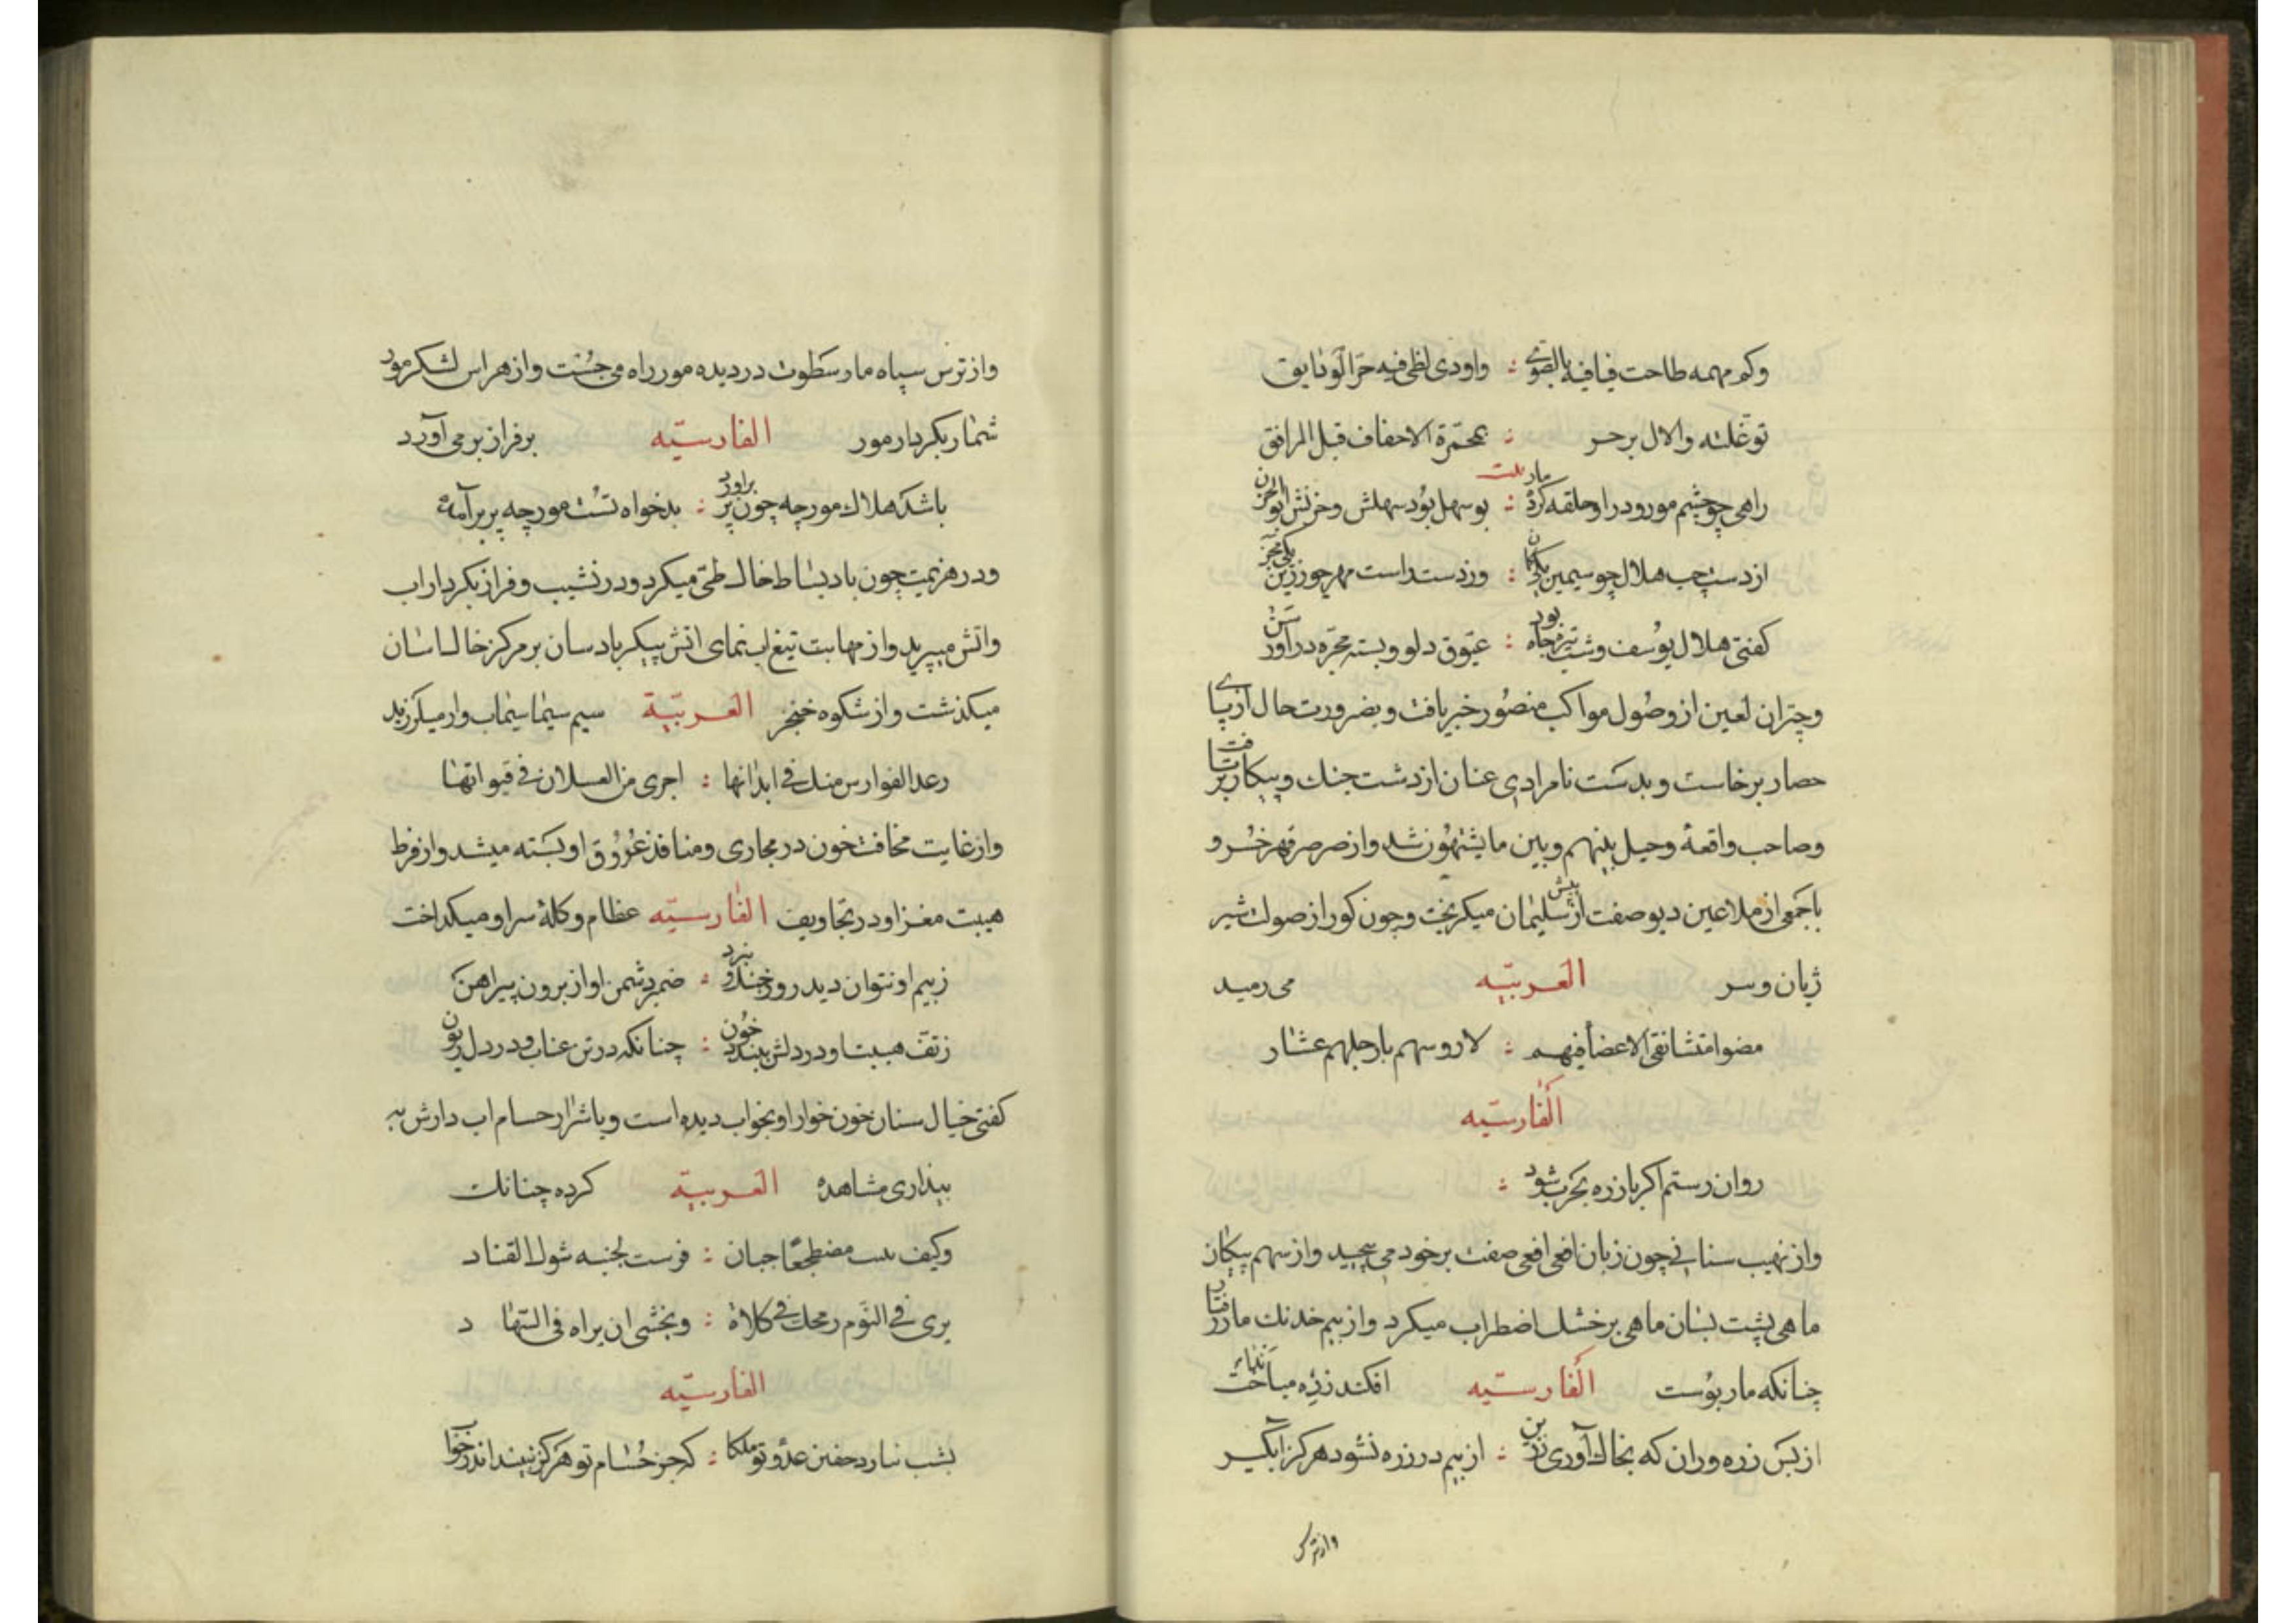 وكم مهمه طاحت فيافيه بالصوى : واودى لظى فيه حر الودايق
توغلته والال برحـر : بمحمرة الاخفاف قبل المرافق
راهی چو چشم مور و در او حلقه کرده مار : بو سهل بود سهلش و حزنش ابو الحزن
از دست چپ هلال چو سیمین یکی کمان : وز دست راست مهر چو زرین یکی مجن
کفتی هلال یوسف و شب تیره چاه بود : عیوق دلو و بسته مجره در آو رسن
و چتران لعین از وصول مواکب منصور خبر یافت و بضرورت حال از پای
حصار برخاست و بدست نامرادی عنان از دشت جنك و پیکار برتافت
وصاحب واقعهٔ وحیل بینهم وبین ما یشتهون شد و از صرصر قهر خسرو
با جمعی از ملاعین دیو صفت از پیش سلیمان میکریخت و چون کور از صولت شیر
ژیان و سر العربیّه می رمید
مضوا متسابقى الاعضاء فيهم : لاروسهم بارجلهم عثار
الفارسیّه
روان رستم اکر باز ره بحرب شود :
و از نهیب سنانی چون زبان افعی افعی صفت بر خود می پیچید و از سهم پیکان
ماهی پشت بسان ماهی بر خشك اضطراب میکرد و از بیم خدنك مار رفتار
چنانکه مار پوست الفارسیّه افکند زره میانداخت
از بس زره وران که بخاك آوری زین : از بیم در زره نشود هرکز آبکیر
و از ترس
و از ترس سپاه مار سطوت در دیده مور راه می جست و از هراس لشکر مور
شمار بکردار مور الفارسیّه بر فراز بر می آورد
باشد هلاك مورچه چون پر برآورد : بدخواه تست مورچه پر بر آمده
و در هزیمت چون باد بساط خاك طی میکرد و در نشیب و فراز بکردار اب
و اتش میپرید و از مهابت تیغ اب نمای اتش پیکر باد سان بر مرکز خاك اسان
میکذشت و از شکوه خنجر العربیّة سیم سیما سیماب وار میلرزید
رعد الفوارس منك فى ابدانها : اجرى من العسلان فى قنواتها
و از غایت مخافت خون در مجاری و منافذ عروق او بسته میشد و از فرط
هیبت مغز او در تجاویف الفارسیّه عظام و کلهٔ سر او میکداخت
ز بیم او نتوان دید روز خندق و نبرد : ضمیر دشمن او از برون پیراهن
ز تف هیبت او در دلش ببندد خون : چنانکه در تن عناب و در دل روین
کفتی خیال سنان خون خوار او بخواب دیده است و یا شرار حسام اب دارش به
بیداری مشاهده العربیّة کرده چنانك
وكيف مضطجعا جبان : فرست لجنبه شوك القتاد
يرى فى النوم رمحك فى كلاه : ويخشى ان يراه فى السها د
الفارسیّه
بشب نیارد خفتن عدو تو ملکا : که جز حسام تو هرکز نبیند اندر خواب